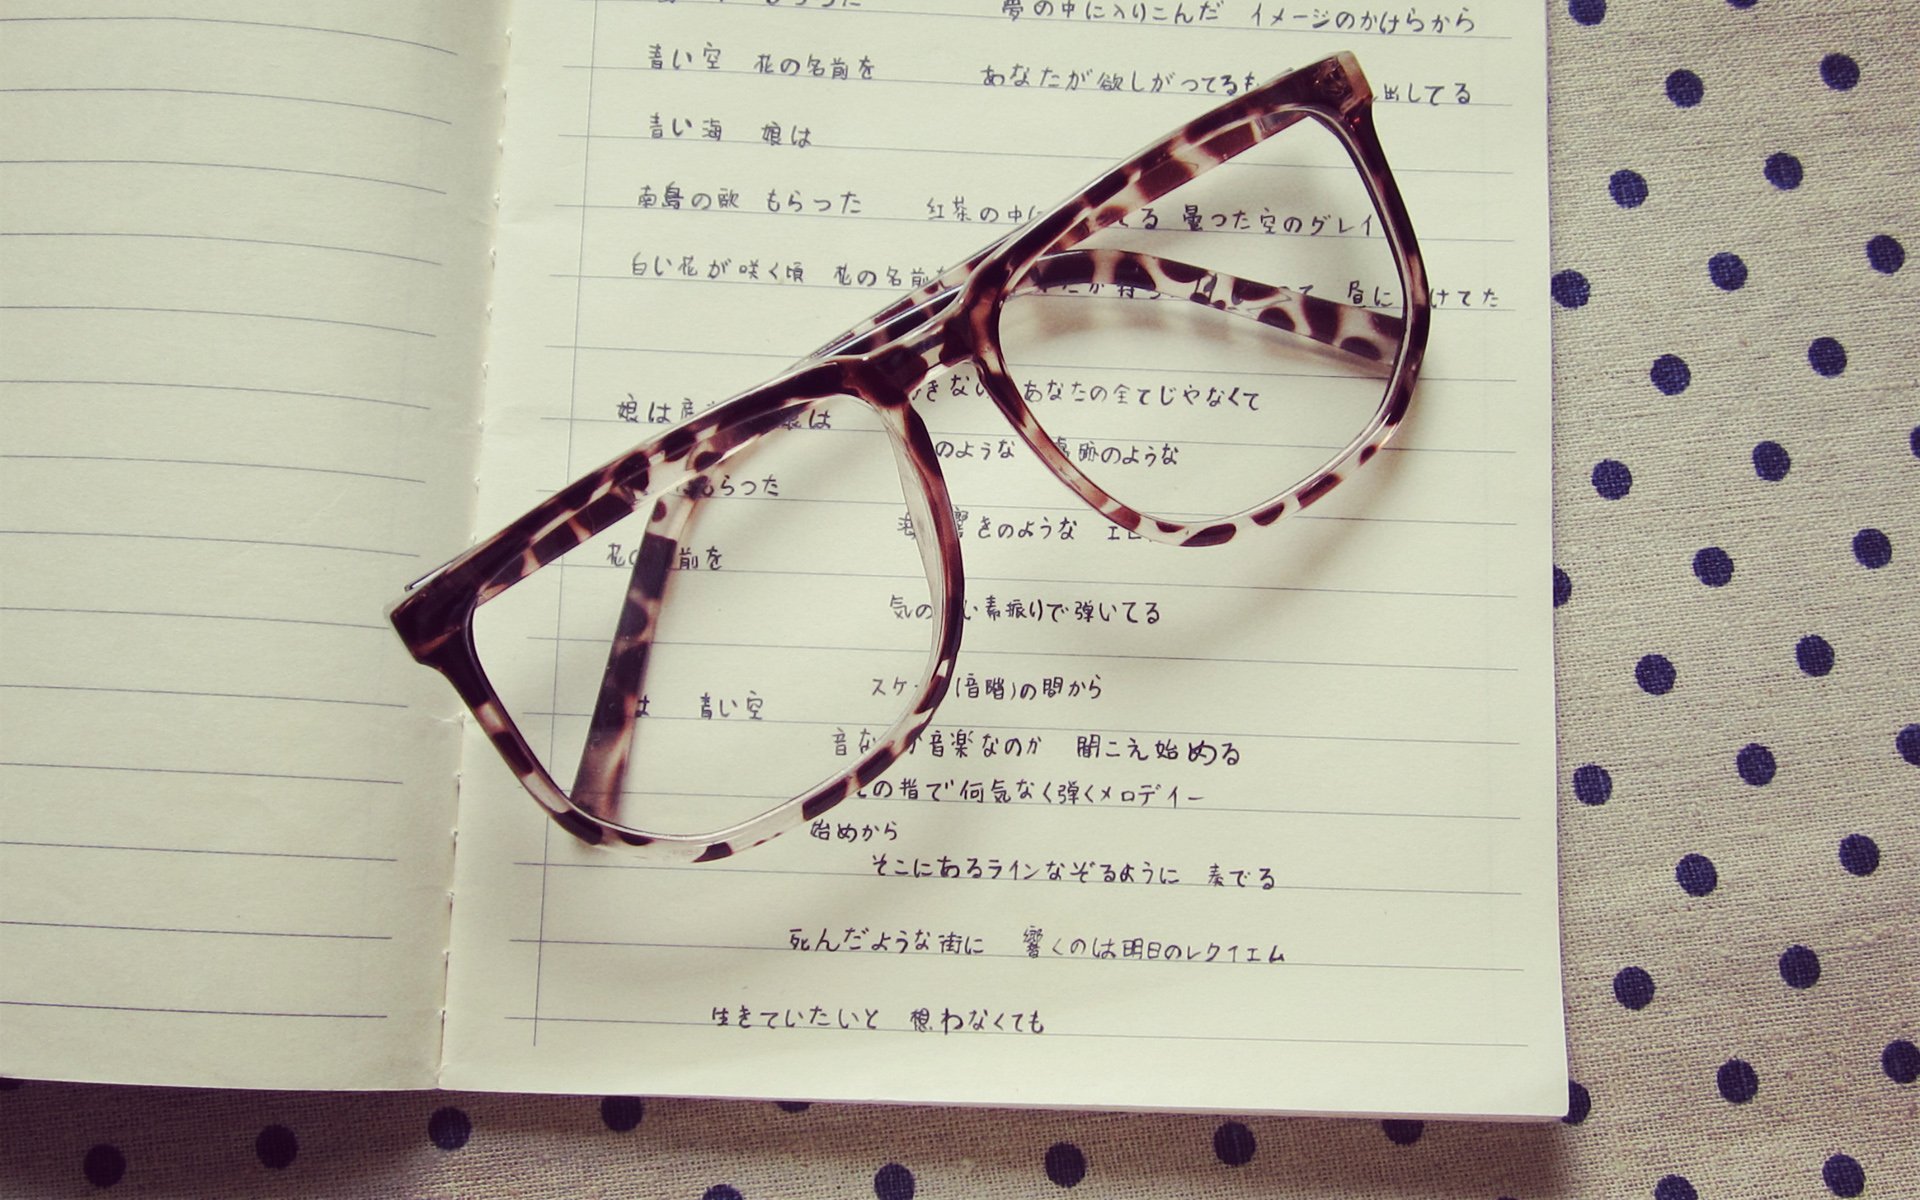 もらった 夢の中に入りこんだ イメージのかけらから
青い空 花の名前を あなたが欲しがってるも 出してる
青い海 娘は
南島の歌 もらった 紅茶の中に てる 曇った空のグレイ
白い花が咲く頃 花の名前を 昼に けてた
娘は 娘は きない あなたの全てじゃなくて
のような 跡のような
もらった
響きのような
花の 前を
気の い素振りで弾いてる
スケ (音階)の間から
は 青い空
音な 音楽なのか 聞こえ始める
の指で何気なく弾くメロディー
始めから
そこにあるラインなぞるように 奏でる
死んだような街に 響くのは明日のレクイエム
生きていたいと 想わなくても